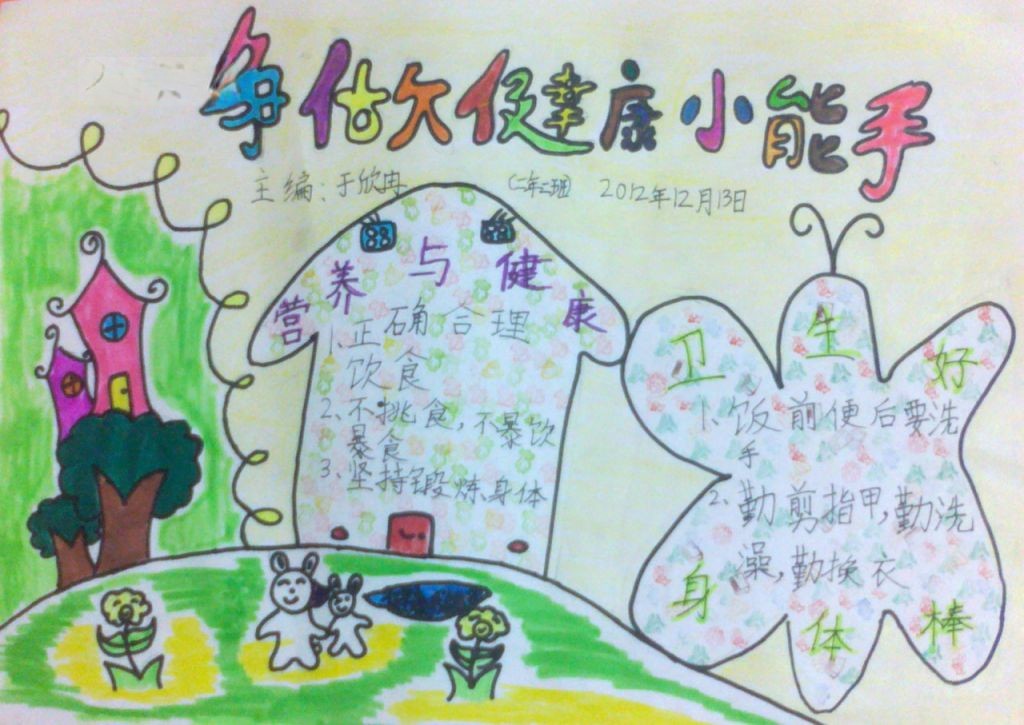 争做健康小能手
主编:于欣冉 (二年二班) 2012年12月13日
营养与健康
1、正确合理
饮食
2、不挑食,不暴饮
暴食
3、坚持锻炼身体
卫生好
1、饭前便后要洗
手
2、勤剪指甲,勤洗
澡,勤换衣
身体棒